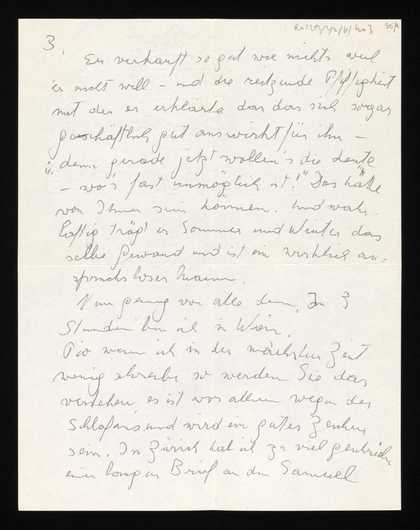 3.
Er verkauft so gut wie nichts weil
er nicht will – und die reizende Pfiffigkeit
mit der er erklärte das das sich sogar
geschäftlich gut auswirkt für ihn –
"denn gerade jetzt wollen's die Leute
– wo's fast unmöglich ist!" Das hätte
von Ihnen sein können. Und wahr-
haftig trägt er Sommer und Winter das
selbe Gewand und ist ein wirklich an-
spruchsloser Mann.
Nun genug von alle dem, In 3
Stunden bin ich in Wien.
wenn ich in der nächsten Zeit
wenig schreibe so werden Sie das
verstehen es ist vor allem wegen des
Schlafens und wird ein gutes Zeichen
sein. In Zürich hab ich zu viel geschrieben
einen langen Brief an den Samuel